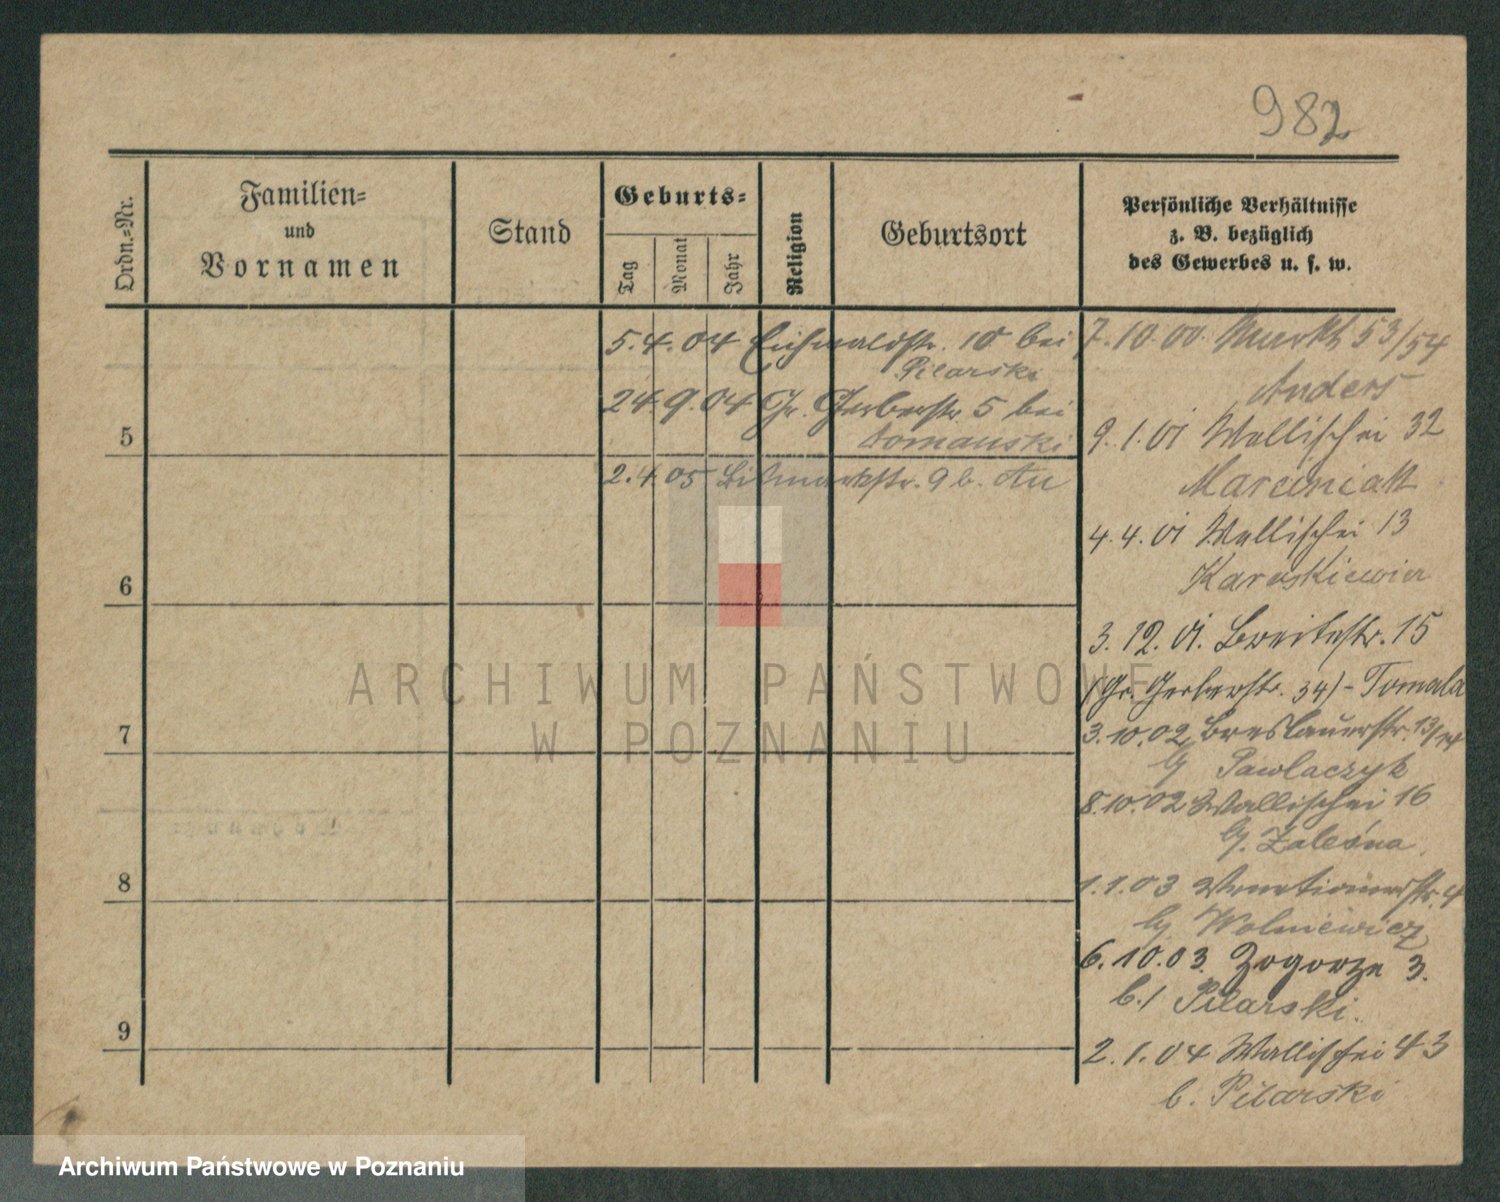 982
Ordn.-Nr.
Familien-
und
Vornamen
Stand
Geburts-
Tag
Monat
Jahr
Religion
Geburtsort
Persönliche Verhältnisse
z. B. bezüglich
des Gewerbes u. s. w.
5.4.04 Eichwaldstr. 10 bei
Pilarski
24.9.04 Gr. Gerberstr. 5 bei
Tomanski
2.4.05 Bismarckstr. 9 b.
5
6
7
8
9
7.10.00. Markt 53/54
Anders
9.1.01 Wallischei 32
Marciniak
4.4.01 Wallischei 13
3.12.01. Breitestr. 15
(Gr. Gerberstr. 34) - Tomala
3.10.02 Breslauerstr. 13/14
b/ Pawlaczyk
8.10.02 Wallischei 16
b/. Zaleśna
1.1.03 Venetianerstr. 4
b/ Wolniewicz
6.10.03. Zagorze 3.
b./ Pilarski.
2.1.04 Wallischei 43
b. Pilarski
ARCHIWUM PAŃSTWOWE
W POZNANIU
Archiwum Państwowe w Poznaniu